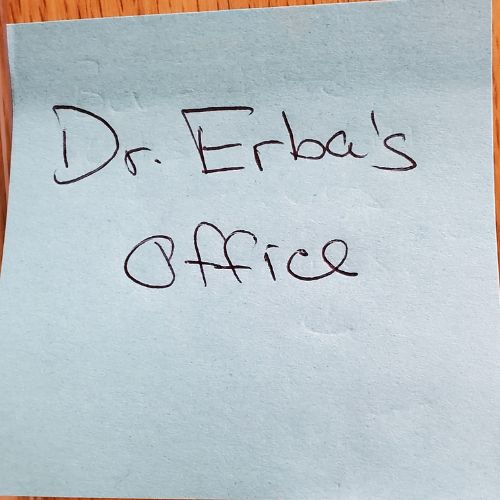 Dr. Erba's
Office